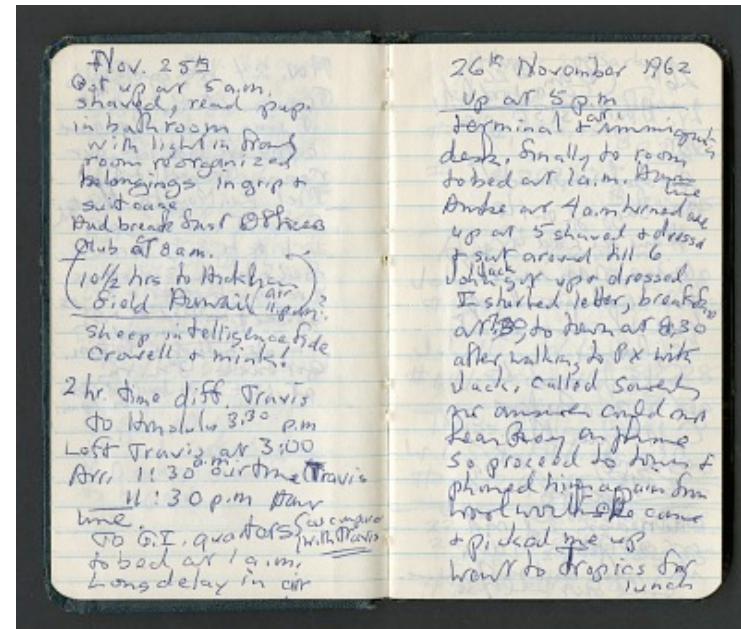 Nov. 25th
Got up at 5 a.m.
shaved, read pap.
in bathroom
with light in
room reorganized
belongings in grip &
suitcase
Had breakfast Officers
Club at 8 am.
(10 1/2 hrs to Hickham
Field Hawaii air 11 p.m.?)
sheep intelligence
Crowell & mink!
2 hr. time diff. Travis
to Honolulu 3:30 p.m
Left Travis at 3:00
Arr. 1:30 a.m. our time Travis
11:30 p.m Haw
time.
To G.I. quarters (as compared with Travis
to bed at 1 a.m.
Long delay in air
26th November 1962
up at 5 p.m
terminal & at immigrants
desk. finally to room
to bed at 1 a.m. time
Awoke at 4 a.m turned
up at 5 shaved & dressed
& sat around till 6
Jack got up & dressed
I started letter, breakfast
at 7:30, to town at 8:30
after walking to PX with
Jack, called
no answer could not
hear on phone
so proceed to town &
phoned him again from
Woolworths came
& picked me up
went to tropics for
lunch